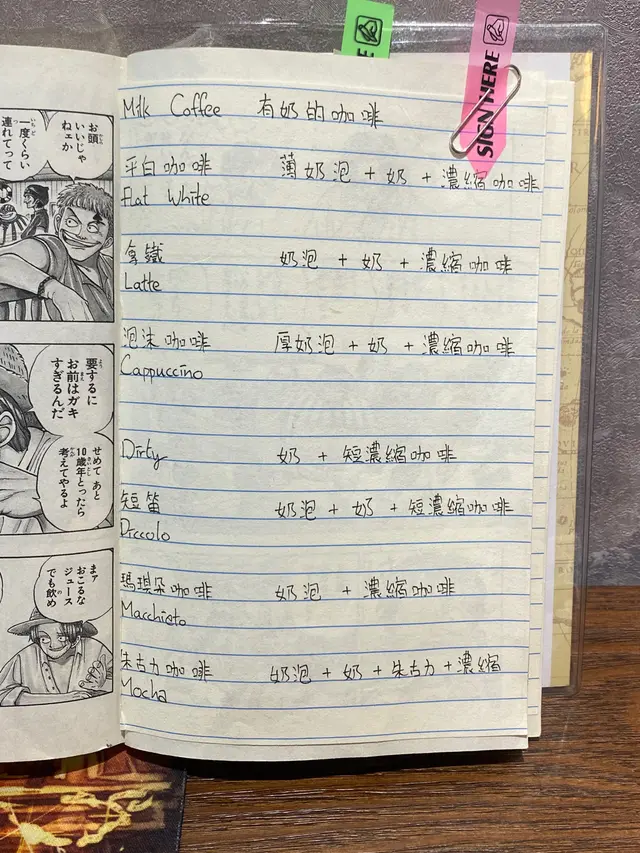 SIGN HERE
お頭
いいじゃ
ねェか
一度くらい
連れてって
要するに
お前はガキ
すぎるんだ
せめてあと
10歳年とったら
考えてやるよ
まァ
おこるな
ジュース
でも飲め
Milk Coffee 有奶的咖啡
平白咖啡 薄奶泡 + 奶 + 濃縮咖啡
Flat White
拿鐵 奶泡 + 奶 + 濃縮咖啡
Latte
泡沫咖啡 厚奶泡 + 奶 + 濃縮咖啡
Cappuccino
Dirty 奶 + 短濃縮咖啡
短笛 奶泡 + 奶 + 短濃縮咖啡
Piccolo
瑪琪朵咖啡 奶泡 + 濃縮咖啡
Macchieto
朱古力咖啡 奶泡 + 奶 + 朱古力 + 濃縮
Mocha